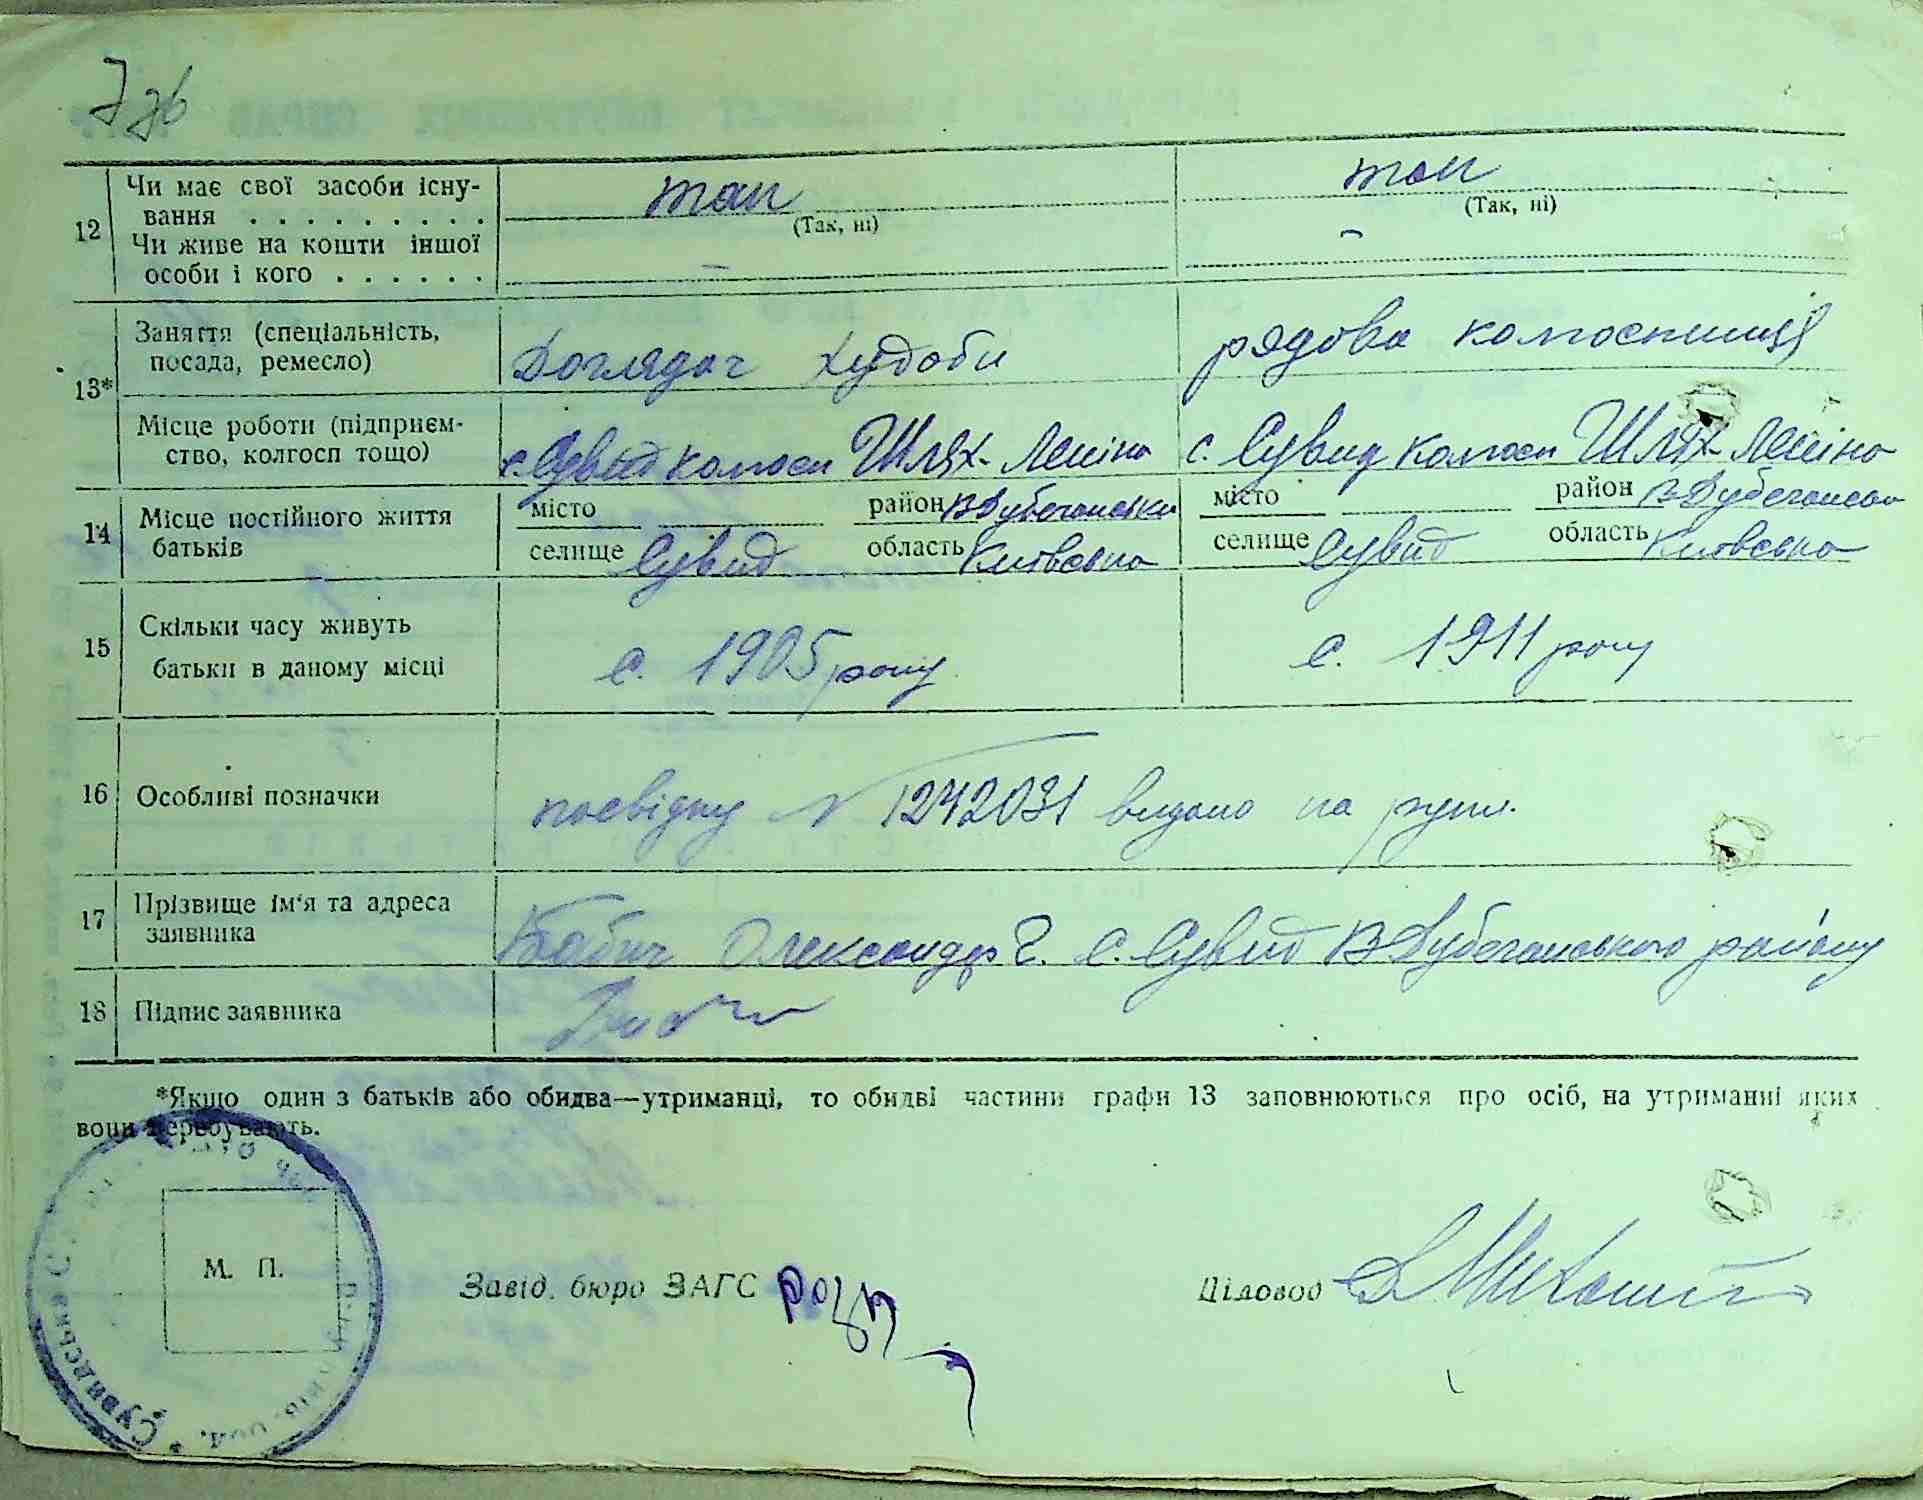 12 Чи має свої засоби існу-
вання . . . . . . . . . так так
(Так, ні) (Так, ні)
Чи живе на кошти іншої
особи і кого . . . . . . – –
13* Заняття (спеціальність,
посада, ремесло) Доглядач худоби рядова колгоспниця
Місце роботи (підприєм-
ство, колгосп тощо) с. Сувид колгосп Шлях Леніна с. Сувид колгосп Шлях Леніна
14 Місце постійного життя
батьків місто район В Дубечанськи місто район В Дубечанськ
селище Сувид область Київська селище Сувид область Київська
15 Скільки часу живуть
батьки в даному місці с. 1905 року с. 1911 року
16 Особливі позначки посвідку № 1242031 видано на руки.
17 Прізвище ім'я та адреса
заявника Бабич Олександр Г. с. Сувид В Дубечанського району
18 Підпис заявника
*Якщо один з батьків або обидва—утриманці, то обидві частини графи 13 заповнюються про осіб, на утриманні яких
вони перебувають.
М. П.
Завід. бюро ЗАГС
Діловод
Сувидська